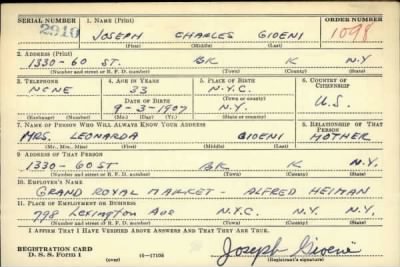 SERIAL NUMBER 1. NAME (Print) ORDER NUMBER
2910 JOSEPH CHARLES GIOENI 1098
(First) (Middle) (Last)
2. ADDRESS (Print)
1330-60 ST. BK K N.Y
(Number and street or R. F. D. number) (Town) (County) (State)
3. TELEPHONE 4. AGE IN YEARS 5. PLACE OF BIRTH 6. COUNTRY OF CITIZENSHIP
NONE 33 N.Y.C.
DATE OF BIRTH (Town or county)
9-3-1907 N.Y. U.S.
(Exchange) (Number) (Mo.) (Day) (Yr.) (State or country)
7. NAME OF PERSON WHO WILL ALWAYS KNOW YOUR ADDRESS 8. RELATIONSHIP OF THAT PERSON
MRS. LEONARDA GIOENI MOTHER
(Mr., Mrs., Miss) (First) (Middle) (Last)
9. ADDRESS OF THAT PERSON
1330-60 ST BK K N.Y.
(Number and street or R. F. D. number) (Town) (County) (State)
10. EMPLOYER'S NAME
GRAND ROYAL MARKET - ALFRED HEIMAN
11. PLACE OF EMPLOYMENT OR BUSINESS
798 Lexington Ave N.Y.C. N.Y. N.Y.
(Number and street or R. F. D. number) (Town) (County) (State)
I AFFIRM THAT I HAVE VERIFIED ABOVE ANSWERS AND THAT THEY ARE TRUE.
REGISTRATION CARD
D. S. S. FORM 1 (over) 16-17105 Joseph Gioeni
(Registrant's signature)